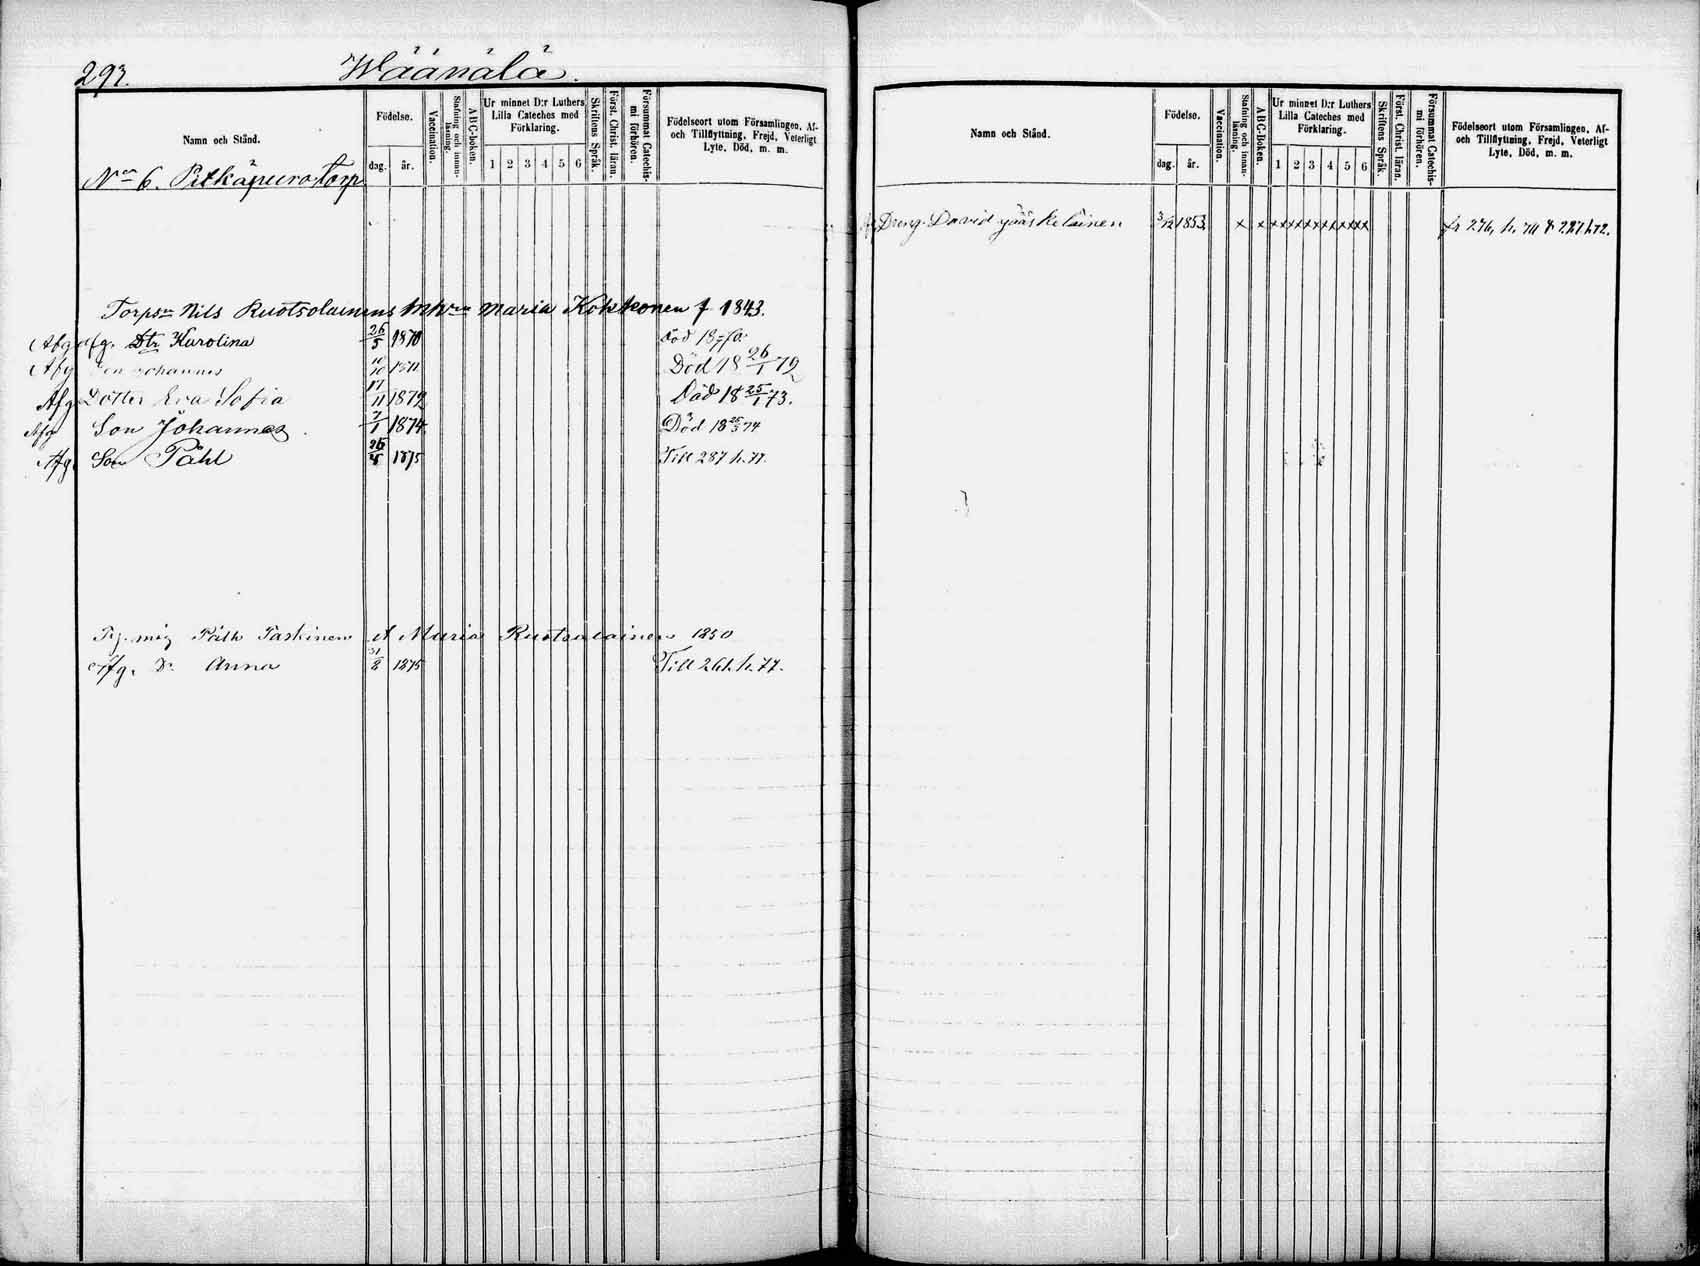 293.
Wäänälä.
Namn och Stånd.
Födelse.
dag. år.
Vaccination.
Stafning och innanläsning.
ABC-boken.
Ur minnet D:r Luthers Lilla Cateches med Förklaring.
1 2 3 4 5 6
Skriftens Språk.
Först. Christ. läran.
Försummat Catechismi förhören.
Födelseort utom Församlingen, Af- och Tillflyttning, Frejd, Veterligt Lyte, Död, m. m.
N:o 6. Pitkäpuro Torp
Torpn Nils Ruotsolainens Maria Kokkonen f 1843.
Afg. Dtr Karolina 26/5 1870
Afg Son Johannes 10/10 1871 Död 18 26/1 72
Afg Dotter Eva Sofia 17/11 1872 Död 18 25/1 73.
Afg Son Johannes 7/1 1874. Död 18 25/3 74
Afg. Son Påhl 26/5 1875 Till 287 h. 77.
Påhl Paskinen o Maria Ruotsalainen 1850
Afg. Dr Anna 31/8 1875 Till 261. h. 77.
Namn och Stånd.
Födelse.
dag. år.
Vaccination.
Stafning och innanläsning.
ABC-Boken.
Ur minnet D:r Luthers Lilla Cateches med Förklaring.
1 2 3 4 5 6
Skriftens Språk.
Först. Christ. läran.
Försummat Catechismi förhören.
Födelseort utom Församlingen, Af- och Tillflyttning, Frejd, Veterligt Lyte, Död, m. m.
Dreng David Jääskeläinen 3/12 1853. x x xxxxxxxxxx fr 276, h. 70 t 227 h 72.